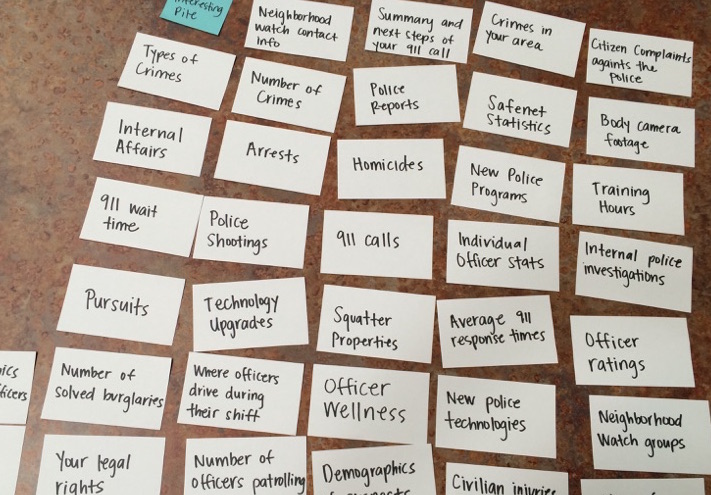 Interesting
Pile
Neighborhood
watch contact
info
Summary and
next steps of
your 911 call
Crimes in
your area
Citizen Complaints
againts the
Police
Types of
Crimes
Number of
Crimes
Police
Reports
Safenet
Statistics
Body camera
footage
Internal
Affairs
Arrests
Homicides
New Police
Programs
Training
Hours
911 wait
time
Police
Shootings
911 calls
Individual
Officer stats
Internal police
investigations
Pursuits
Technology
Upgrades
Squatter
Properties
Average 911
response times
Officer
ratings
Number of
solved burglaries
Where officers
drive during
their shift
Officer
Wellness
New police
technologies
Neighborhood
Watch groups
Your legal
rights
Number of
officers patrolling
Demographics
Civilian injuries